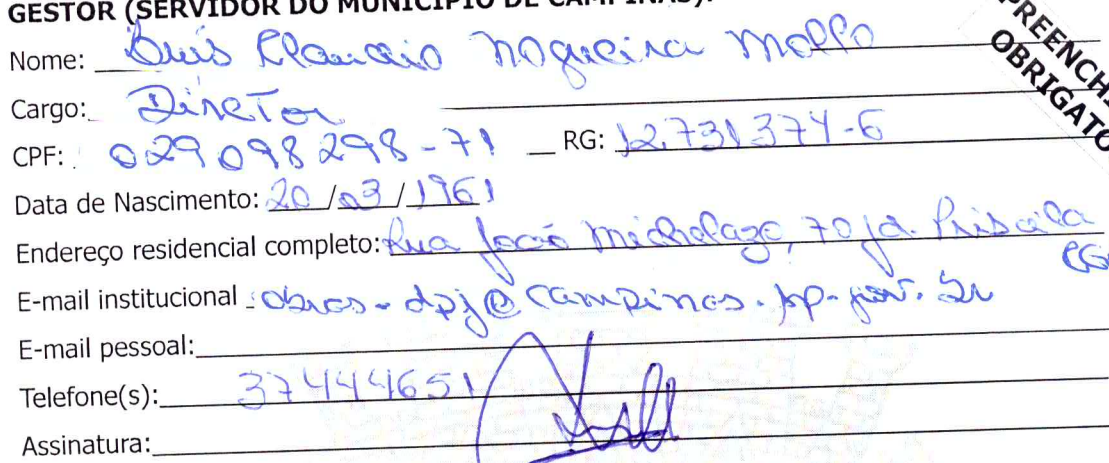 GESTOR (SERVIDOR DO MUNICÍPIO DE CAMPINAS):
PREENCHI
OBRIGATÓ
Nome: Luis Claudio Nogueira Mollo
Cargo: Diretor
CPF: 029098298-71 RG: 12.731374-6
Data de Nascimento: 20/03/1961
Endereço residencial completo: Rua João Michelazo, 70 jd. Priscila
E-mail institucional: obras-dpj@campinas.sp.gov.br
E-mail pessoal:
Telefone(s): 37444651
Assinatura: